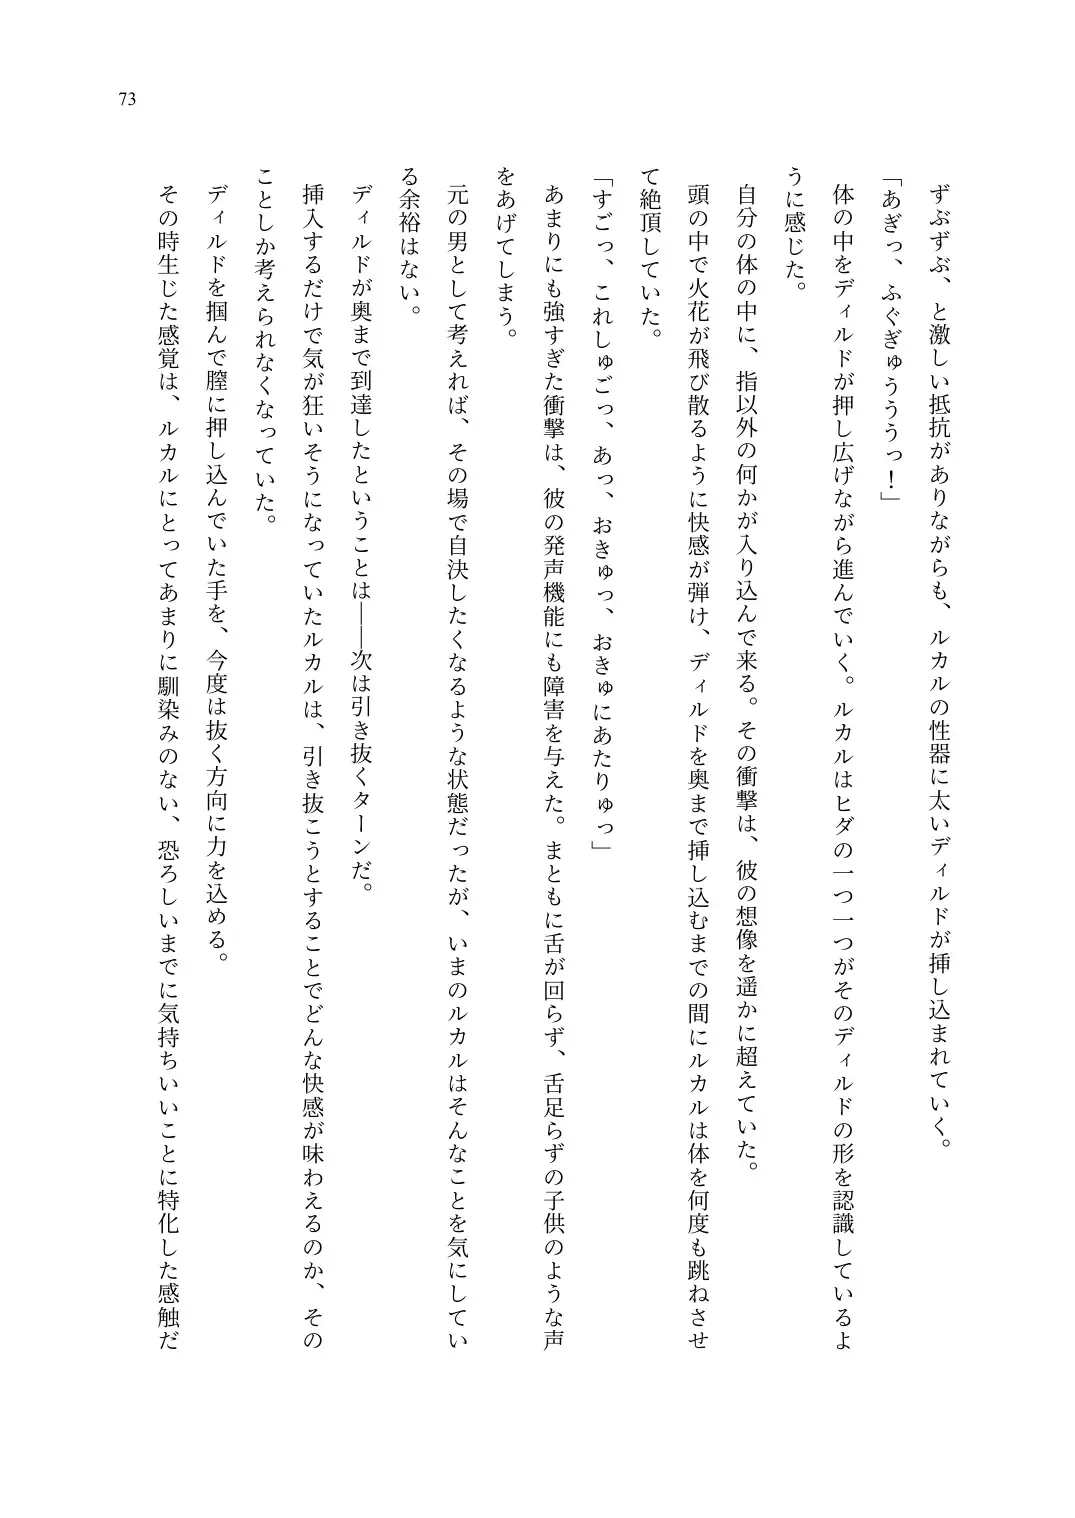 73
ずぶずぶ、と激しい抵抗がありながらも、ルカルの性器に太いディルドが挿し込まれていく。
「あぎっ、ふぐぎゅうううっ！」
体の中をディルドが押し広げながら進んでいく。ルカルはヒダの一つ一つがそのディルドの形を認識しているよ
うに感じた。
自分の体の中に、指以外の何かが入り込んで来る。その衝撃は、彼の想像を遥かに超えていた。
頭の中で火花が飛び散るように快感が弾け、ディルドを奥まで挿し込むまでの間にルカルは体を何度も跳ねさせ
て絶頂していた。
「すごっ、これしゅごっ、あっ、おきゅっ、おきゅにあたりゅっ」
あまりにも強すぎた衝撃は、彼の発声機能にも障害を与えた。まともに舌が回らず、舌足らずの子供のような声
をあげてしまう。
元の男として考えれば、その場で自決したくなるような状態だったが、いまのルカルはそんなことを気にしてい
る余裕はない。
ディルドが奥まで到達したということは――次は引き抜くターンだ。
挿入するだけで気が狂いそうになっていたルカルは、引き抜こうとすることでどんな快感が味わえるのか、その
ことしか考えられなくなっていた。
ディルドを掴んで膣に押し込んでいた手を、今度は抜く方向に力を込める。
その時生じた感覚は、ルカルにとってあまりに馴染みのない、恐ろしいまでに気持ちいいことに特化した感触だ